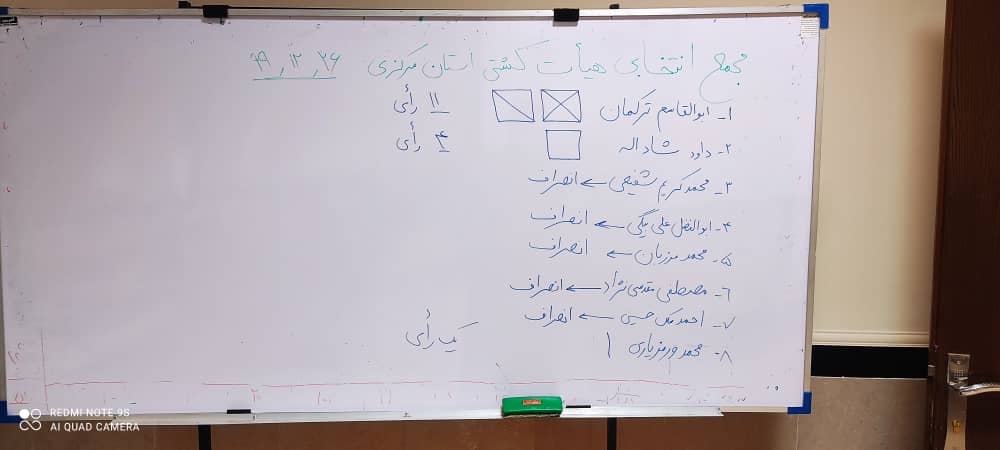 مجمع انتخابی هیأت کشتی استان مرکزی ۹۹٫۱۲٫۲۶
۱- ابوالقاسم ترکمان ۱۱ رأی
۲- داود شاداله ۴ رأی
۳- محمدکریم شفیعی ← انصراف
۴- ابوالفضل علی بیگی ← انصراف
۵- محمد مرزبان ← انصراف
۶- مصطفی مقدسی نژاد ← انصراف
۷- احمد ملک حسینی ← انصراف
۸- محمد ورمزیاری ۱ یک رأی
REDMI NOTE 9S
AI QUAD CAMERA